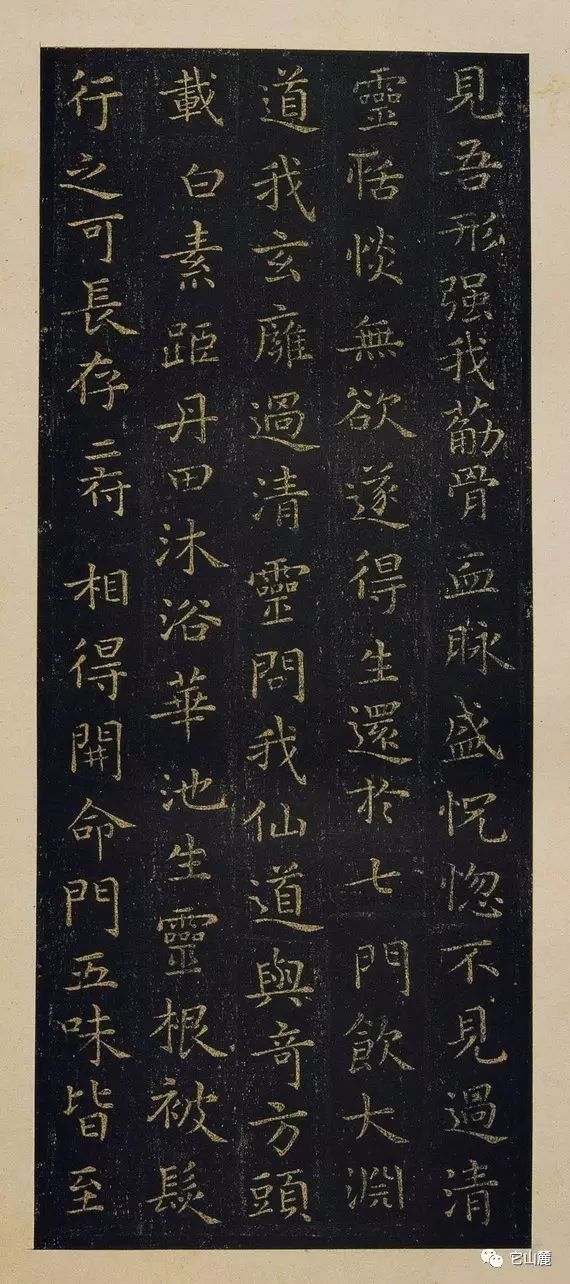 見吾形强我筋骨血脉盛怳惚不見過清
靈恬惔無欲遂得生還於七門飲大淵
道我玄廱過清靈問我仙道與奇方頭
載白素距丹田沐浴華池生靈根被髮
行之可長存二府相得開命門五味皆至
它山麓